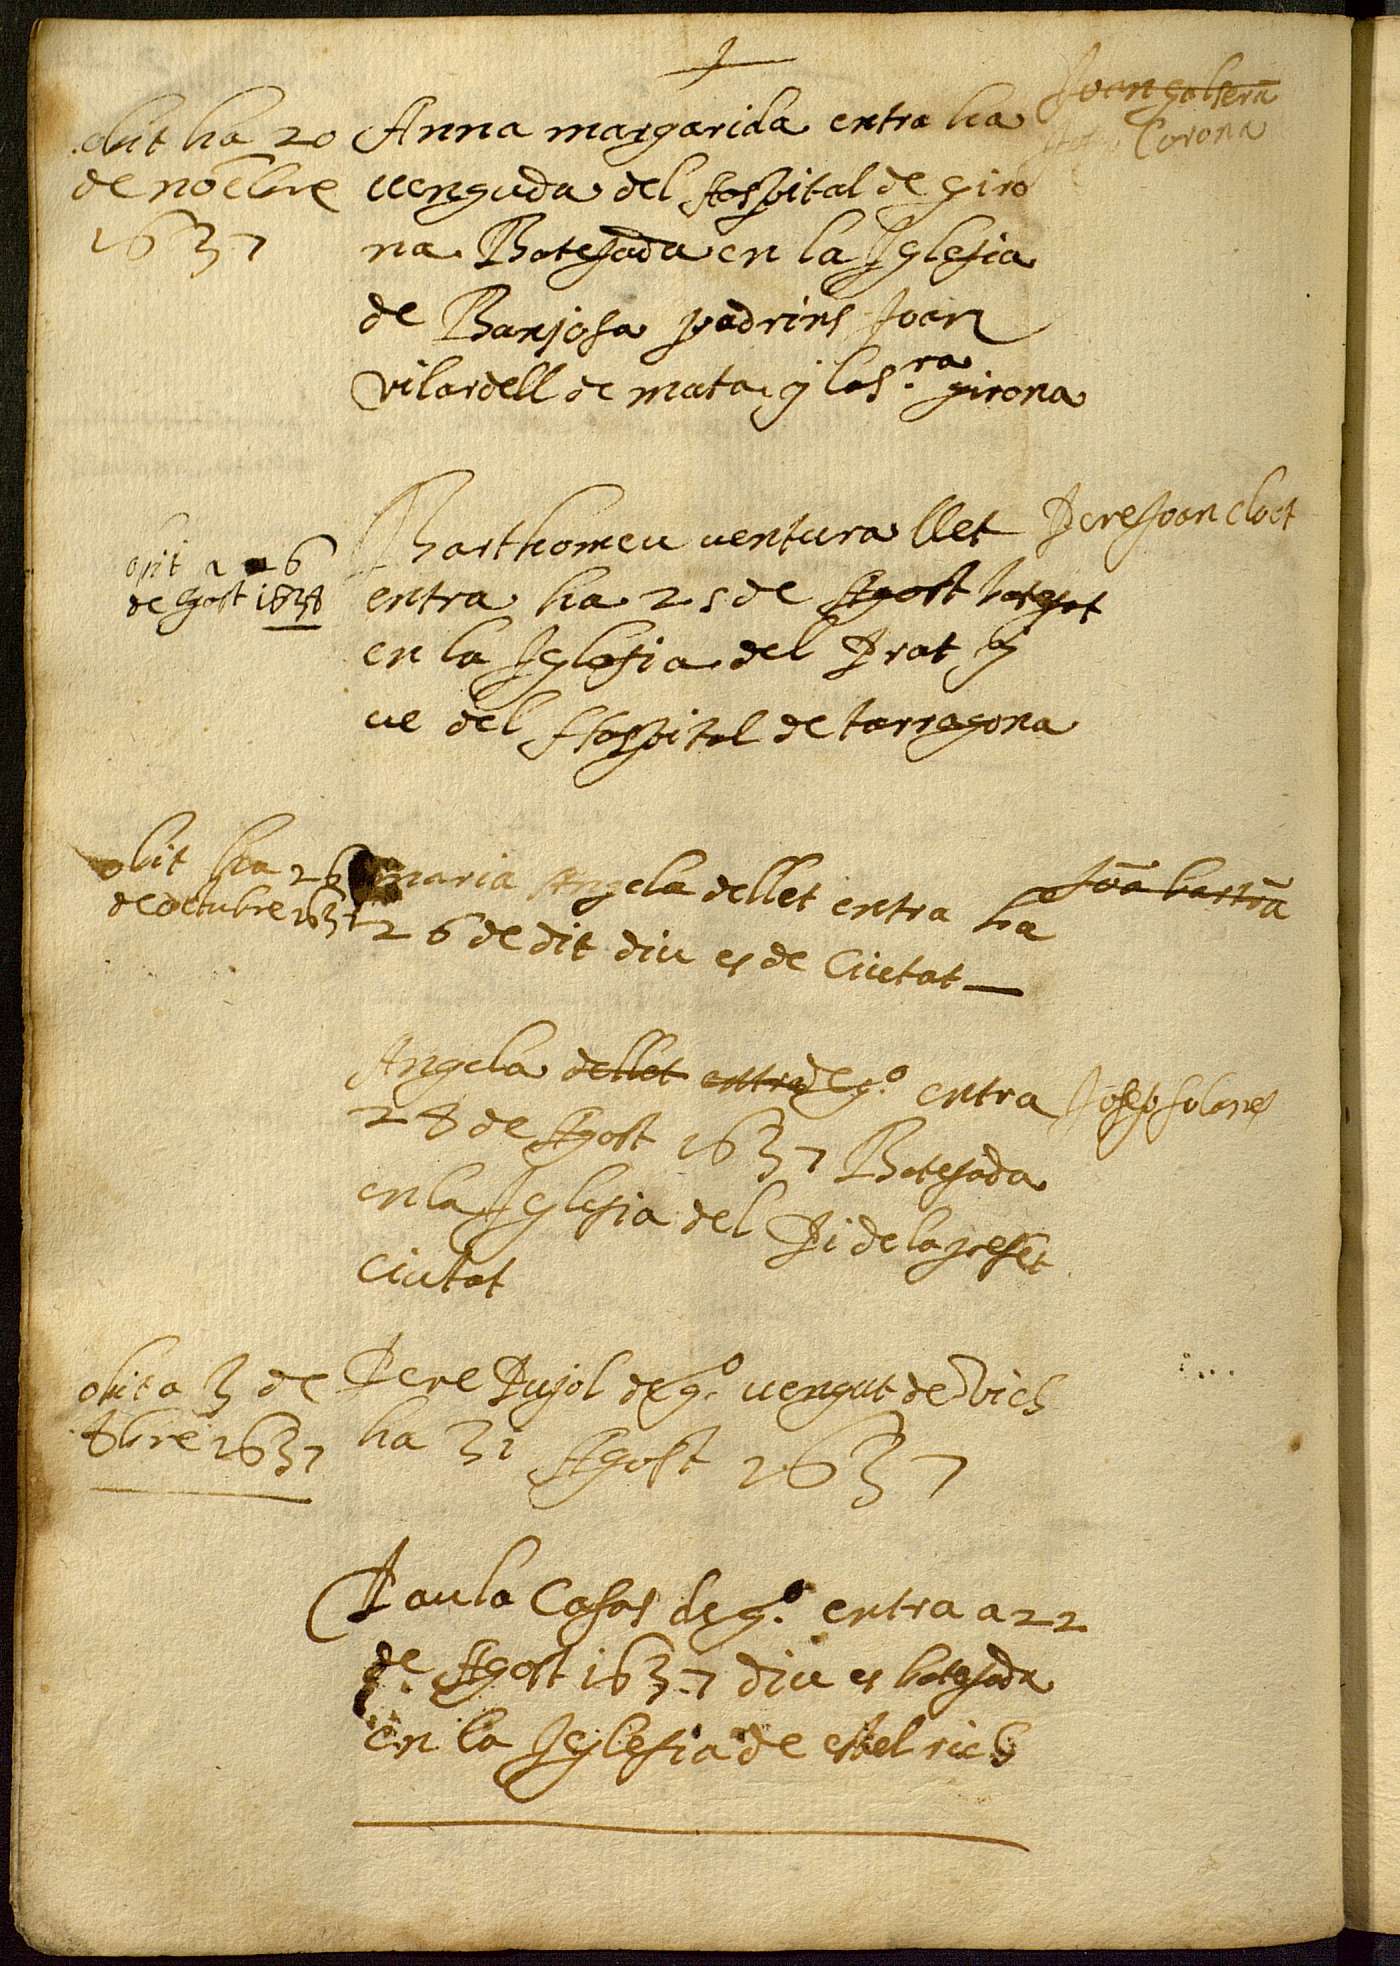 obit ha 20
de noēbre
1637
Anna margarida entra ha
venguda del Hospital de giro
na Batejada en la Iglesia
de Banjosa padrins Joan
vilardell de mata y la s.ra girona
Joan galserā
Corona
obit a 26
de Agost 1638
Barthomeu ventura llet
entra ha 25 de Agost batejat
en la Iglesia del Prat y
ve del Hospital de tarragona
Pere Joan clost
obit ha 26
de octubre 1637
maria Angela de llet entra ha
26 de dit diu es de Ciutat
Joā bastrā
Angela de llet entra de g.o entra
28 de Agost 1637 Batejada
en la Iglesia del Pi de la presēt
Ciutat
Josep solanes
obit a 3 de
8bre 1637
Pere Pujol de g.o vengut de vich
ha 31 Agost 1637
Paula Casas de g.o entra a 22
de Agost 1637 diu es batejada
en la Iglesia de estelrich